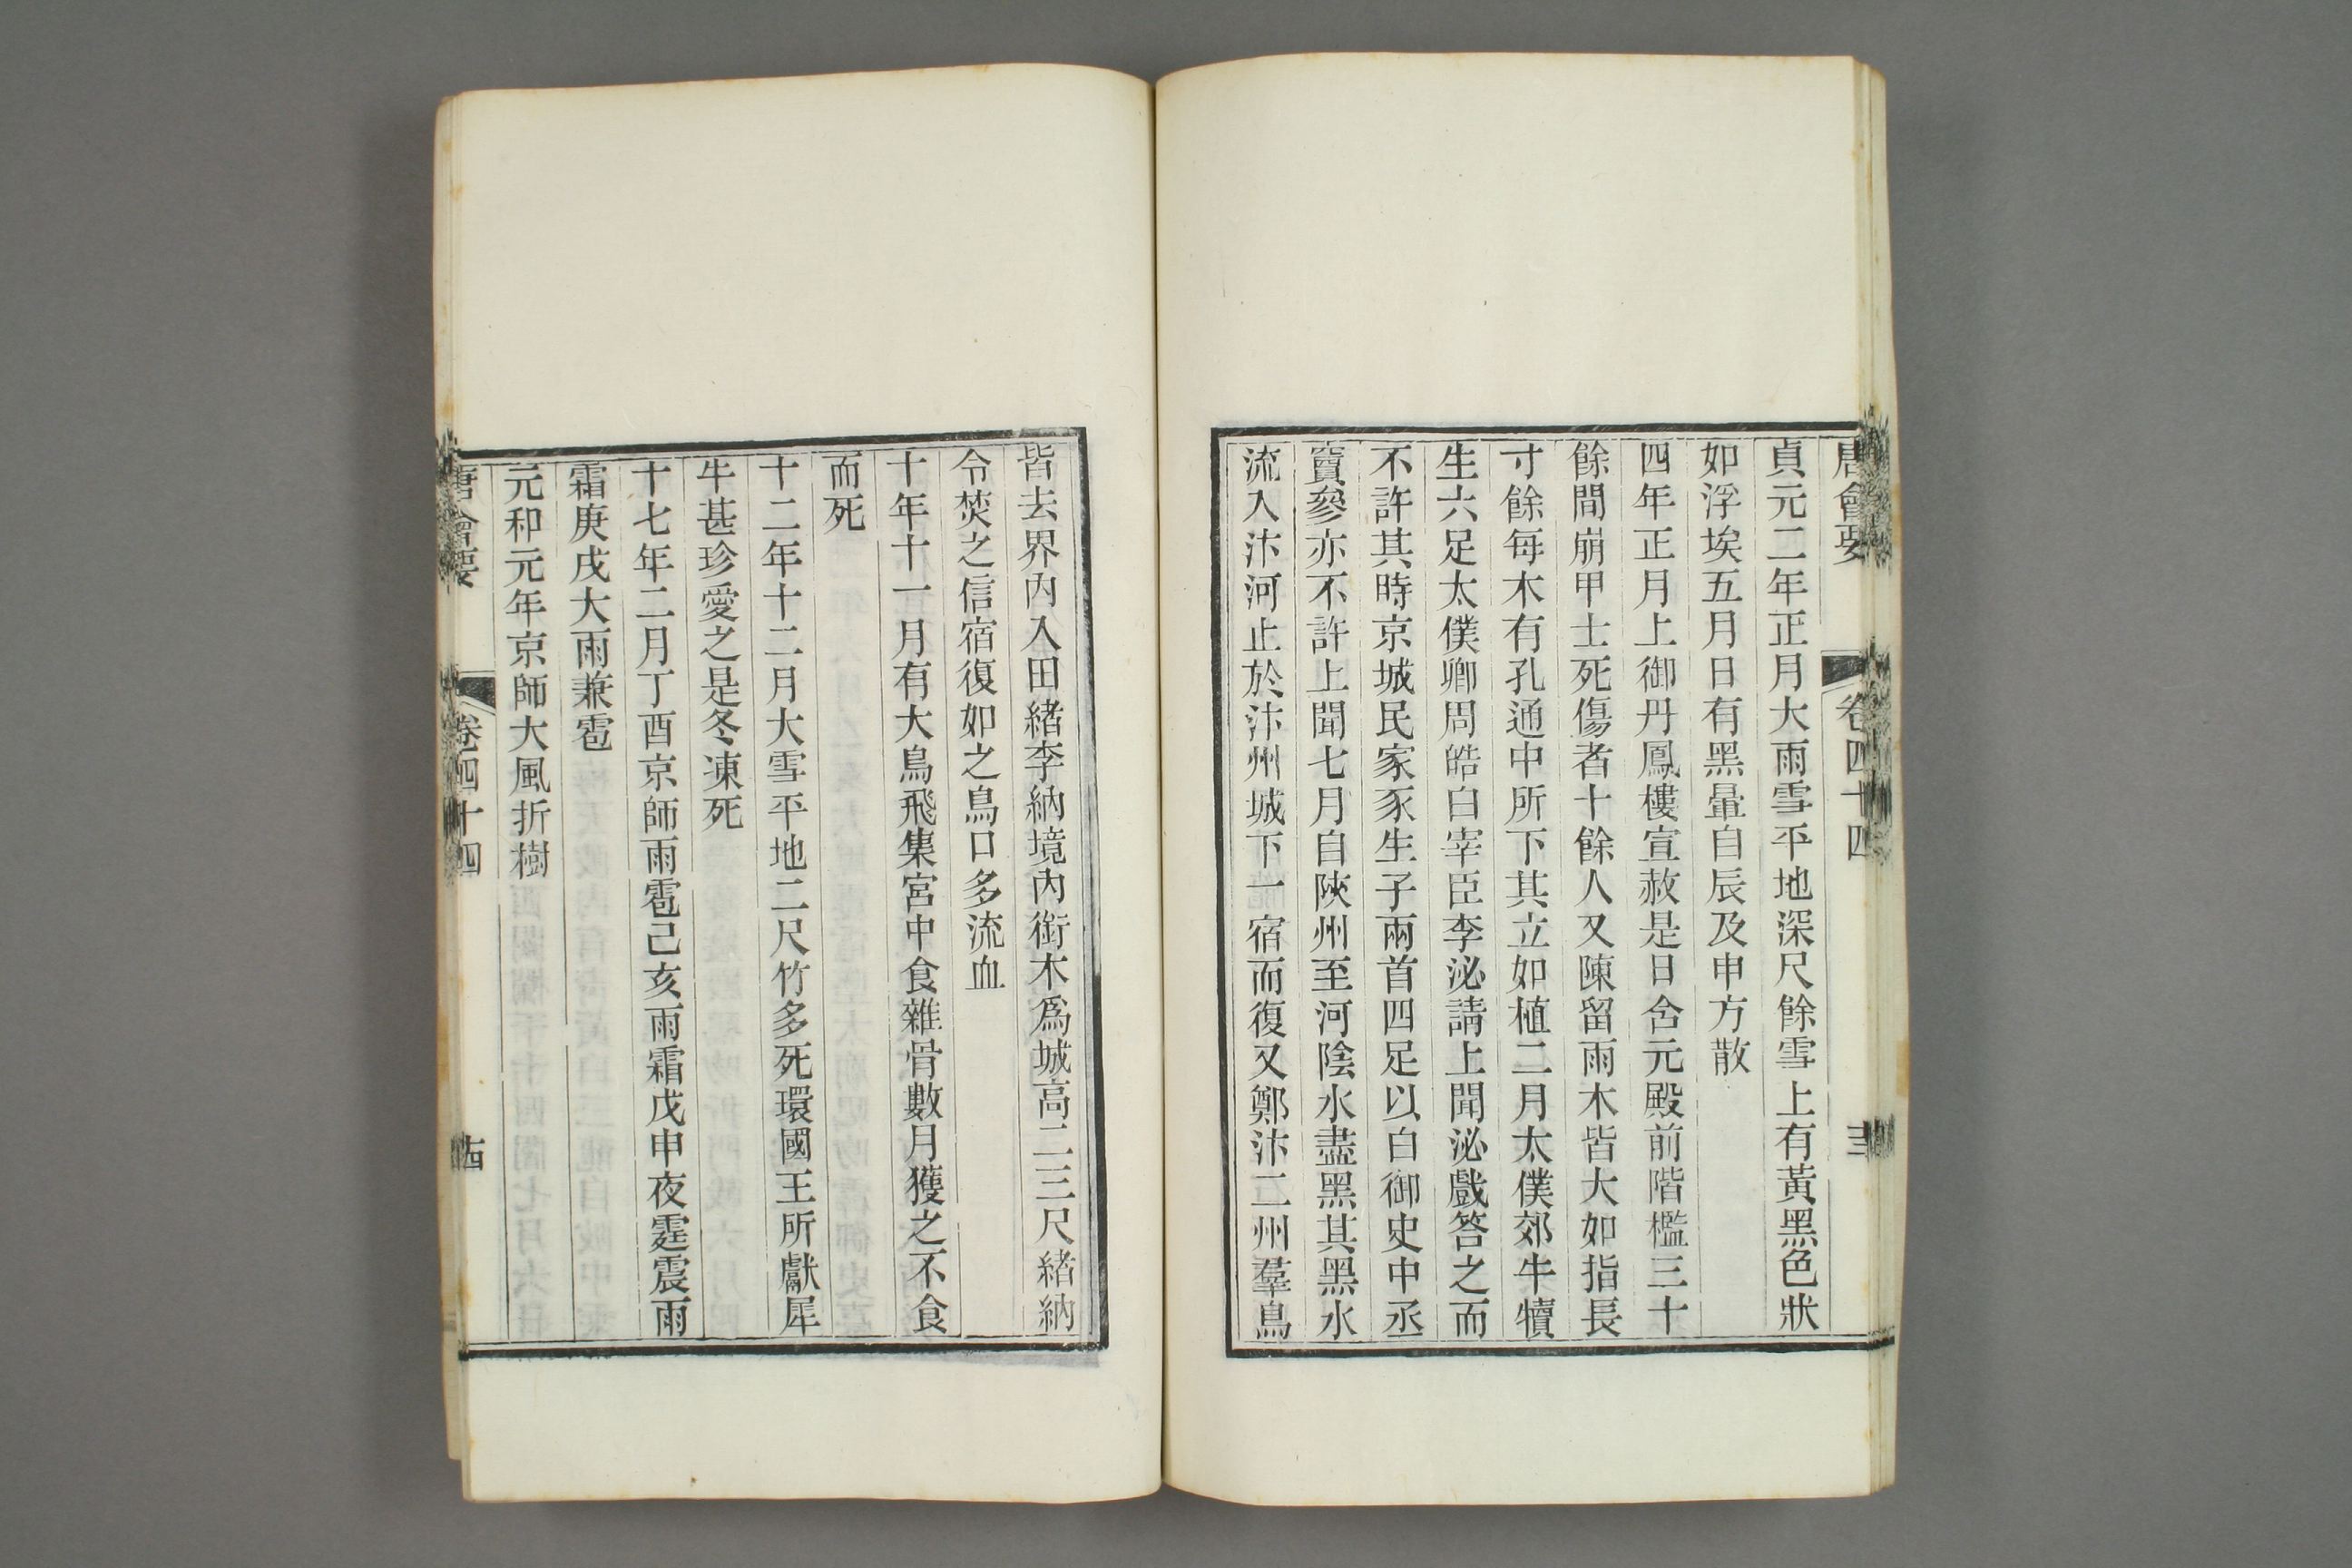 唐會要 卷四十四 十三
貞元二年正月大雨雪平地深尺餘雪上有黃黑色狀
如浮埃五月日有黑暈自辰及申方散
四年正月上御丹鳳樓宣赦是日含元殿前階檻三十
餘間崩甲士死傷者十餘人又陳留雨木皆大如指長
寸餘每木有孔通中所下其立如植二月太僕郊牛犢
生六足太僕卿周皓白宰臣李泌請上聞泌戲答之而
不許其時京城民家豕生子兩首四足以白御史中丞
竇參亦不許上聞七月自陝州至河陰水盡黑其黑水
流入汴河止於汴州城下一宿而復又鄭汴二州羣鳥
皆去界內入田緒李納境內銜木爲城高二三尺緒納
令焚之信宿復如之鳥口多流血
十年十一月有大鳥飛集宮中食雜骨數月獲之不食
而死
十二年十二月大雪平地二尺竹多死環國王所獻犀
牛甚珍愛之是冬凍死
十七年二月丁酉京師雨雹己亥雨霜戊申夜霆震雨
霜庚戌大雨兼雹
元和元年京師大風折樹
唐會要 卷四十四 十四